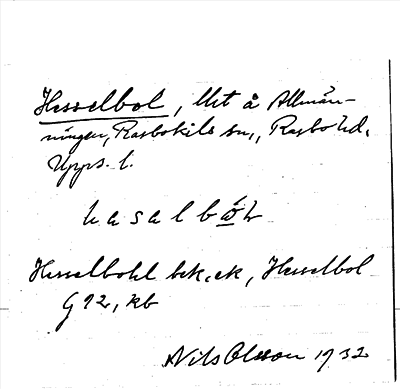 Hesselbol, lht å Allmän-
ningen, Rasbokils sn., Rasbo hd.
Upps. l.
hasalbol
Hesselbohl bek.ek, Hesselbol
G 92, kb
Nils Olsson 1932